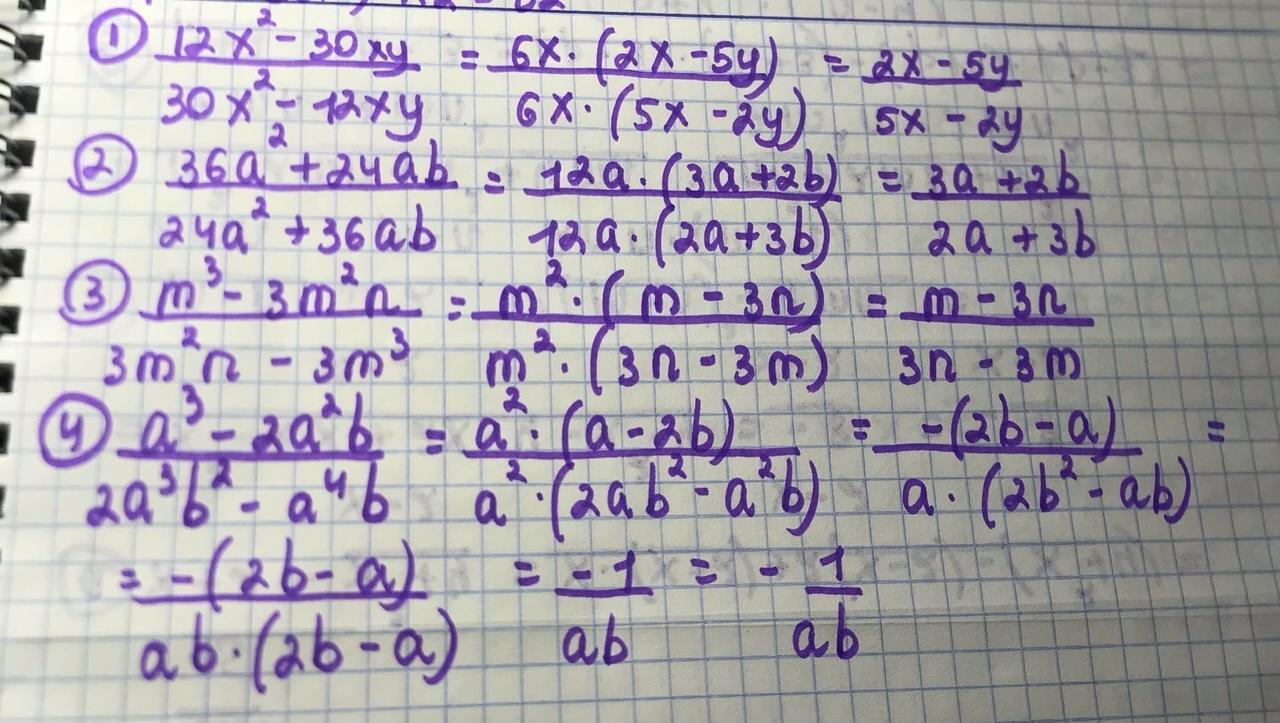 ① (12x² - 30xy)/(30x² - 12xy) = (6x·(2x - 5y))/(6x·(5x - 2y)) = (2x - 5y)/(5x - 2y)
② (36a² + 24ab)/(24a² + 36ab) = (12a·(3a + 2b))/(12a·(2a + 3b)) = (3a + 2b)/(2a + 3b)
③ (m³ - 3m²n)/(3m²n - 3m³) = (m²·(m - 3n))/(m²·(3n - 3m)) = (m - 3n)/(3n - 3m)
④ (a³ - 2a²b)/(2a³b² - a⁴b) = (a²·(a - 2b))/(a²·(2ab² - a²b)) = (-(2b - a))/(a·(2b² - ab)) =
= (-(2b - a))/(ab·(2b - a)) = (-1)/(ab) = - 1/(ab)